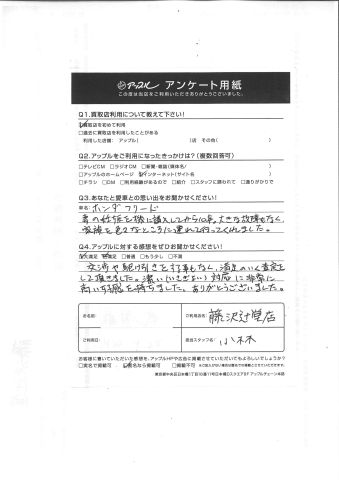 アップル アンケート用紙
この度は当店をご利用いただきありがとうございました。
Q1.買取店利用について教えて下さい!
☑買取店を初めて利用
□過去に買取店を利用したことがある
利用した店舗: アップル( )店 その他( )
Q2.アップルをご利用になったきっかけは?(複数回答可)
□テレビCM □ラジオCM □新聞・雑誌(媒体名/ )
□アップルのホームページ ☑インターネット(サイト名 )
□チラシ □DM □利用経験があるので □紹介 □スタッフに誘われて □通りがかりで
Q3.あなたと愛車との思い出をお聞かせください!
車名: ホンダ フリード
妻の妊娠を機に購入してから10年。大きな故障もなく、
家族を色々なところに連れて行ってくれました。
Q4.アップルに対する感想をぜひお聞かせください!
☑大満足 □満足 □普通 □もう少し □不満
交渉や駆け引きをする事もなく、満足のいく査定を
して頂きました。潔い(いさぎよい)対応に非常に
良い印象を持ちました。ありがとうございました。
お名前
ご利用店名: 藤沢辻堂店
ご利用日
担当スタッフ名: 小林
お客様に書いていただいた感想を、アップルHPや広告に掲載させていただいてもよろしいでしょうか?
□実名で掲載可 ☑匿名なら掲載可 □掲載不可